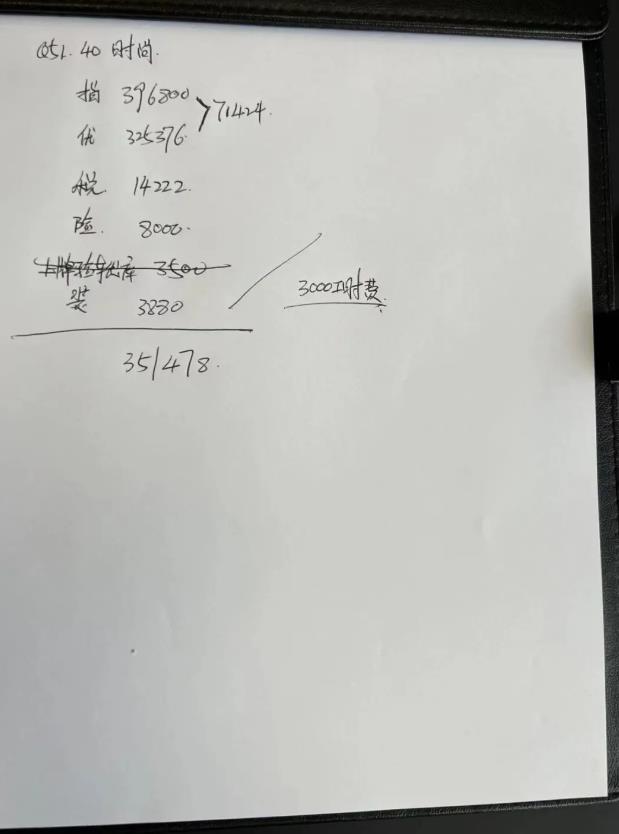 Q5L.40时尚.
指 396800 >71424.
优 325376.
税. 14222.
险. 8000.
上牌验车出库 3500
装 3880
3000工时费.
351478.